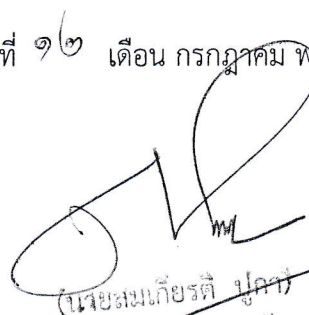 ที่ ๑๒ เดือน กรกฎาคม พ
(นายสมเกียรติ ปูกา)